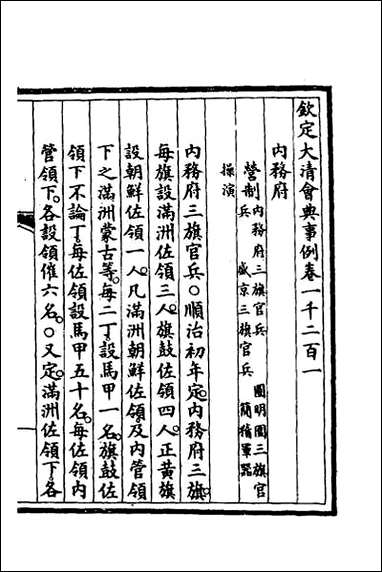 欽定大清會典事例卷一千二百一
內務府
營制內務府三旗官兵 圓明園三旗官
兵 盛京三旗官兵 簡稽軍器
操演
內務府三旗官兵○順治初年定。內務府三旗。
每旗設滿洲佐領三人。旗鼓佐領四人。正黃旗
設朝鮮佐領一人。凡滿洲朝鮮佐領。及內管領
下之滿洲蒙古等。每二丁設馬甲一名。旗鼓佐
領下不論丁。每佐領設馬甲五十名。每佐領內
管領下。各設領催六名。○又定。滿洲佐領下。各